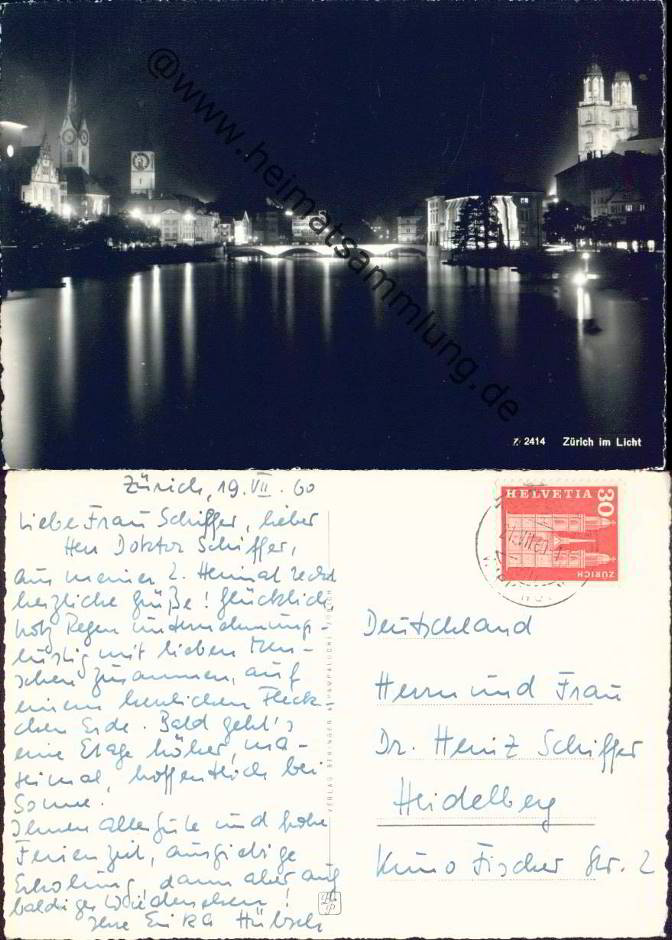 @www.heimatsammlung.de
Z 2414 Zürich im Licht
Zürich, 19. VII. 60
Liebe Frau Schiffer, lieber
Herr Doktor Schiffer,
aus meiner 2. Heimat recht
herzliche Grüße! Glücklich
trotz Regen unternehmungs-
lustig mit lieben Men-
schen zusammen, auf
einem herrlichen Fleck-
chen Erde. Bald geht's
eine Etage höher,
hoffentlich bei
Sonne.
Ihnen alles Gute und frohe
Ferienzeit, ausgiebige
Erholung, dann aber auf
baldiges Wiedersehen!
Ihre Erika Hübsch
HELVETIA
30
ZÜRICH
Deutschland
Herrn und Frau
Dr. Heinz Schiffer
Heidelberg
Kuno Fischer Str. 2